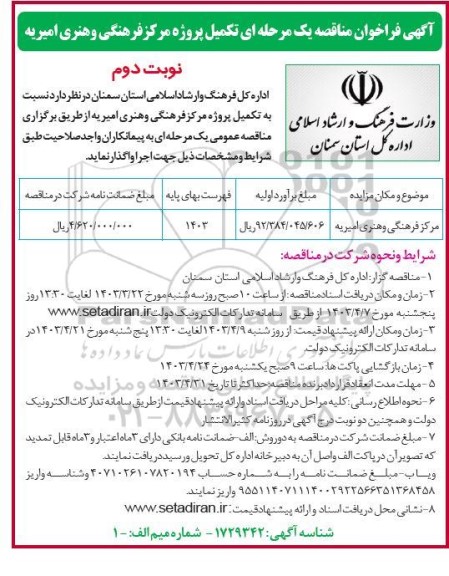 آگهی فراخوان مناقصه یک مرحله ای تکمیل پروژه مرکز فرهنگی و هنری امیریه
نوبت دوم
وزارت فرهنگ و ارشاد اسلامی
اداره کل استان سمنان
اداره کل فرهنگ و ارشاد اسلامی استان سمنان در نظر دارد نسبت
به تکمیل پروژه مرکز فرهنگی وهنری امیریه از طریق برگزاری
مناقصه عمومی یک مرحله ای به پیمانکاران واجد صلاحیت طبق
شرایط و مشخصات ذیل جهت اجرا واگذار نماید.
موضوع و مکان مزایده	مبلغ برآورد اولیه	فهرست بهای پایه	مبلغ ضمانت نامه شرکت در مناقصه
مرکز فرهنگی و هنری امیریه	۹۲/۳۸۴/۰۴۵/۶۰۶ریال	۱۴۰۳	۴/۶۲۰/۰۰۰/۰۰۰ریال
شرایط و نحوه شرکت در مناقصه:
۱-مناقصه گزار: اداره کل فرهنگ وارشاد اسلامی استان سمنان
۲- زمان و مکان دریافت اسناد مناقصه: از ساعت ۱۰ صبح روز سه شنبه مورخ ۱۴۰۳/۳/۲۲ لغایت ۱۳:۳۰ روز
پنجشنبه مورخ ۱۴۰۳/۴/۷ از طریق سامانه تدارکات الکترونیک دولت www.setadiran.ir
۳- زمان و مکان ارائه پیشنهاد قیمت: از روز شنبه ۱۴۰۳/۴/۹ لغایت ۱۳:۳۰ پنج شنبه مورخ ۱۴۰۳/۴/۲۱ در
سامانه تدارکات الکترونیک دولت.
۴- زمان بازگشایی پاکت ها: ساعت ۹ صبح یکشنبه مورخ ۱۴۰۳/۴/۲۴
۵- مهلت مدت انعقاد قرارداد برنده مناقصه حداکثر تا تاریخ ۱۴۰۳/۴/۳۱
۶- نحوه اطلاع رسانی: کلیه مراحل دریافت اسناد وارائه پیشنهاد قیمت از طریق سامانه تدارکات الکترونیک
دولت و همچنین دو نوبت درج آگهی در روزنامه کثیر الانتشار
۷- مبلغ ضمانت شرکت در مناقصه به دو روش: الف- ضمانت نامه بانکی دارای ۳ماه اعتبار و ۳ماه قابل تمدید
که تصویر آن در پاکت الف و اصل آن به دبیرخانه اداره کل تحویل و رسید دریافت نمایند.
ویا ب- مبلغ ضمانت نامه را به شماره حساب ۴۰۷۱۰۲۶۱۰۷۸۲۰۱۹۴ وشناسه واریز
۹۵۵۱۱۴۰۷۱۱۱۴۰۰۲۹۲۲۵۶۶۳۵۱۳۶۸۴۵۸ واریز نمایند.
۸- نشانی محل دریافت اسناد و ارائه پیشنهاد قیمت: www.setadiran.ir
شناسه آگهی: ۱۷۲۹۳۴۲- شماره میم الف: -۱